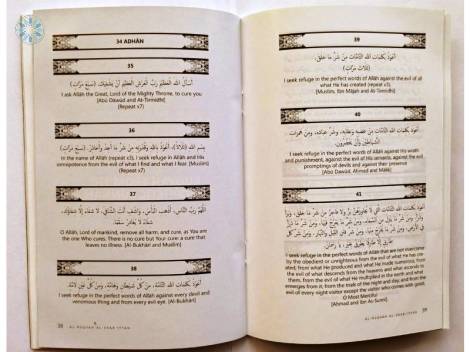 34 ADHĀN
35
أَسْأَلُ اللهَ الْعَظِيمَ رَبَّ الْعَرْشِ الْعَظِيمِ أَنْ يَشْفِيَكَ. (سَبْعَ مَرَّاتٍ)
I ask Allāh the Great, Lord of the Mighty Throne, to cure you
[Abū Dawūd and At-Tirmidhī]
(Repeat x7)
36
In the name of Allāh (repeat x3), I seek refuge in Allāh and His
omnipotence from the evil of what I find and what I fear. [Muslim]
(Repeat x7)
37
O Allāh, Lord of mankind, remove all harm, and cure, as You are
the one Who cures. There is no cure but Your cure: a cure that
leaves no illness. [Al-Bukhārī and Muslim]
38
I seek refuge in the perfect words of Allāh against every devil and
venomous thing and from every evil eye. [Al-Bukhārī]
38
AL-RUQYAH AL-SHAR'IYYAH
39
أَعُوذُ بِكَلِمَاتِ اللهِ التَّامَّاتِ مِنْ شَرِّ مَا خَلَقَ.
(ثَلَاثَ مَرَّاتٍ)
I seek refuge in the perfect words of Allāh against the evil of all
what He has created (repeat x3).
[Muslim, Ibn Mājah and At-Tirmidhī]
40
I seek refuge in the perfect words of Allāh against His wrath
and punishment, against the evil of His servants, against the evil
promptings of devils and against their presence.
[Abū Dawūd, Ahmad and Mālik]
41
I seek refuge in the perfect words of Allāh that are not overcome
by the obedient or unrighteous from the evil of what He has
created, from what He produced and what He made numerous, from
the evil of what descends from the heavens and what ascends to
them, from the evil of what He multiplied in the earth and what
emerges from it, from the trials of the night and day, and from the
evil of every night visitor except the visitor who comes with good,
O Most Merciful
[Ahmad and Ibn As-Sunnī]
AL-RUQYAH AL-SHAR'IYYAH
39